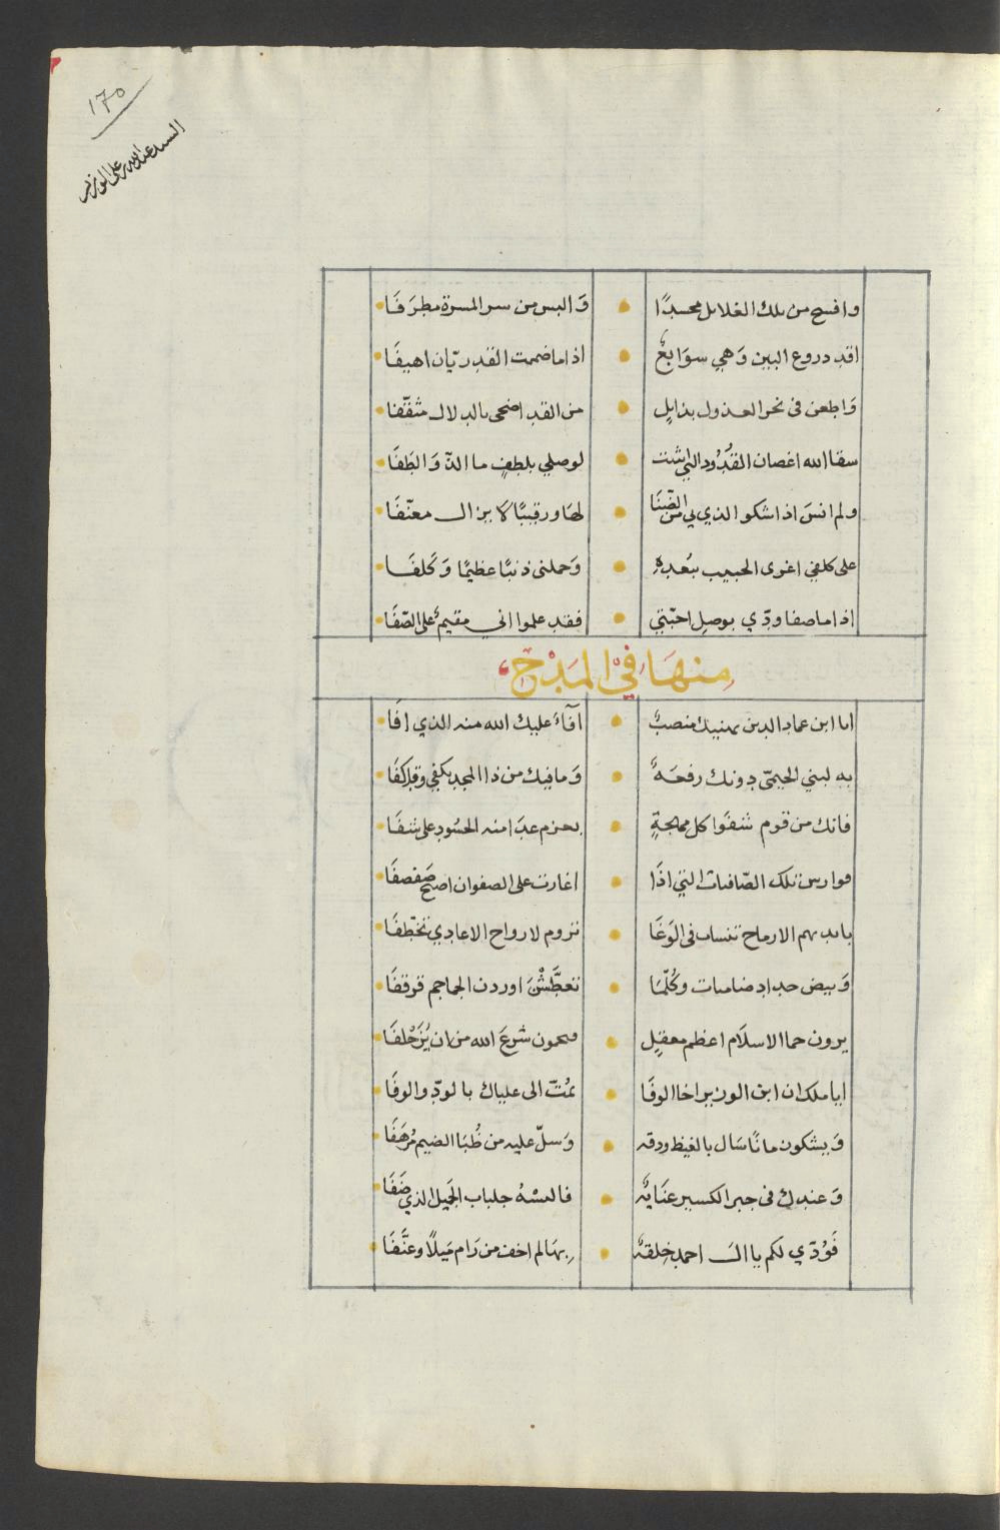 ١٧٥
السيد عبدالله علي الوزير
وافسح من تلك الغلائل محسدًا وَالبس من سر المسرة مطرَفَا
اقد دروع البين وَهي سوَابغٌ اذا ما ضممت القد ريّان اهيفَا
وَاطعن في نحر العذول بذابلٍ من القد اضحى بالدلال مثقّفا
سقا الله اغصان القدُود التي انثنت لوصلي بلطفٍ ما الذّ وَالطَفَا
ولم انسَ اذ اشكو الذي بي من الضّنَا لهَا ورقيبًا لا يزال معنّفَا
على كلفي اغوى الحبيب ببُعدهِ وَحملني ذنبًا عظيمًا وَكَلفَا
اذا ما صفا ودّي بوصل احبّتي فقد علموا اني مقيمٌ على الصّفَا
مِنهَا فِي المَدْحِ
اما ابن عماد الدين يهنيك منصبٌ آفَاءَ عليك الله منه الذي افَا
به لبني الحيمّى دونك رفعَةٌ وَما فيك من ذا المجد يكفي وقد كفَا
فانك من قوم شفَوا كل مهجةٍ بحزم غدَا منه الحسُود على شفَا
فوارس تلك الصّافنات التي اذَا اغارت على الصفوان اصبح صَفصفَا
بايديهم الارماح تنساب في الوَغَا تروم لارواح الاعادي تخطّفَا
وَبيض حداد ضاميات وكُلّمَا تعطَّشْنَ اوردن الجماجم قرقفَا
يرون حما الاسلَام اعظم معقلٍ فيحمون شرعَ الله من ان يُزَحْلفَا
ايا ملك ان ابن الوزير اخا الوفَا يمُتّ الى علياك بالودّ والوفَا
وَيشكون مانًا سَال بالغيظ ودقه وَسلّ عليه من ظُبَا الضيم مُرهَفَا
وَعندك في جبر الكسير عنَايةٌ فالبسْهُ جلباب الجَميل الذي ضَفَا
فَوُدّي لكم يا ال احمد خِلقةٌ بِهَا لم اخف من رَام مَيلًا وعنَّفَا